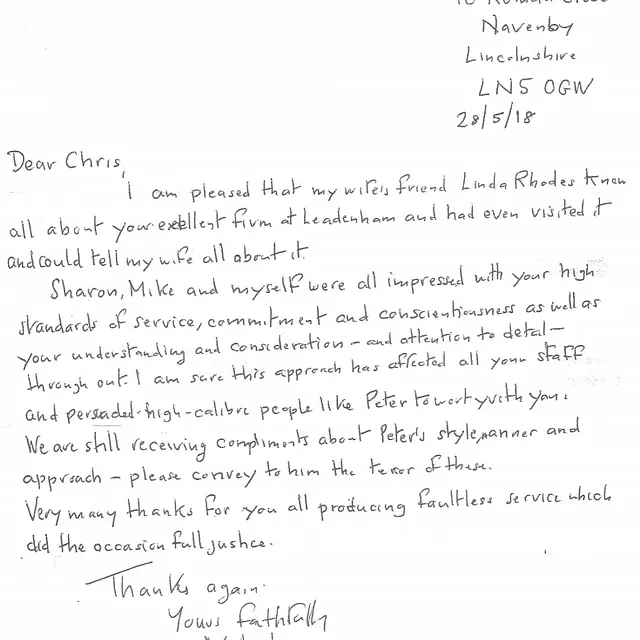 Navenby
Lincolnshire
LN5 0GW
28/5/18
Dear Chris,
I am pleased that my wife's friend Linda Rhodes knew
all about your excellent firm at Leadenham and had even visited it
and could tell my wife all about it.
Sharon, Mike and myself were all impressed with your high
standards of service, commitment and conscientiousness as well as
your understanding and consideration – and attention to detail –
through out. I am sure this approach has affected all your staff
and persuaded high-calibre people like Peter to work with you.
We are still receiving compliments about Peter's style, manner and
approach – please convey to him the tenor of these.
Very many thanks for you all producing faultless service which
did the occasion full justice.
Thanks again.
Yours faithfully